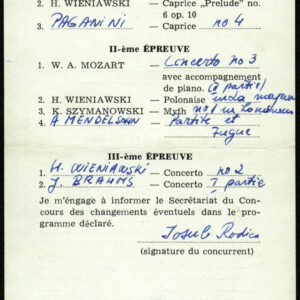 2. H. WIENIAWSKI — Caprice „Prelude" no.
6 op. 10
3. PAGANINI — Caprice no 4
II-ème ÉPREUVE
1. W. A. MOZART — Concerto no 3
avec accompagnement
de piano. (I partie)
2. H. WIENIAWSKI — Polonaise
3. K. SZYMANOWSKI — Myth no 1
4. A MENDELSOHN — Partite et
Fugue
III-ème ÉPREUVE
1. H. WIENIAWSKI — Concerto no 2
2. J. BRAHMS — Concerto I partie
Je m'engage à informer le Secrétariat du Con-
cours des changements éventuels dans le pro-
gramme déclaré.
Iosub Rodica
(signature du concurrent)